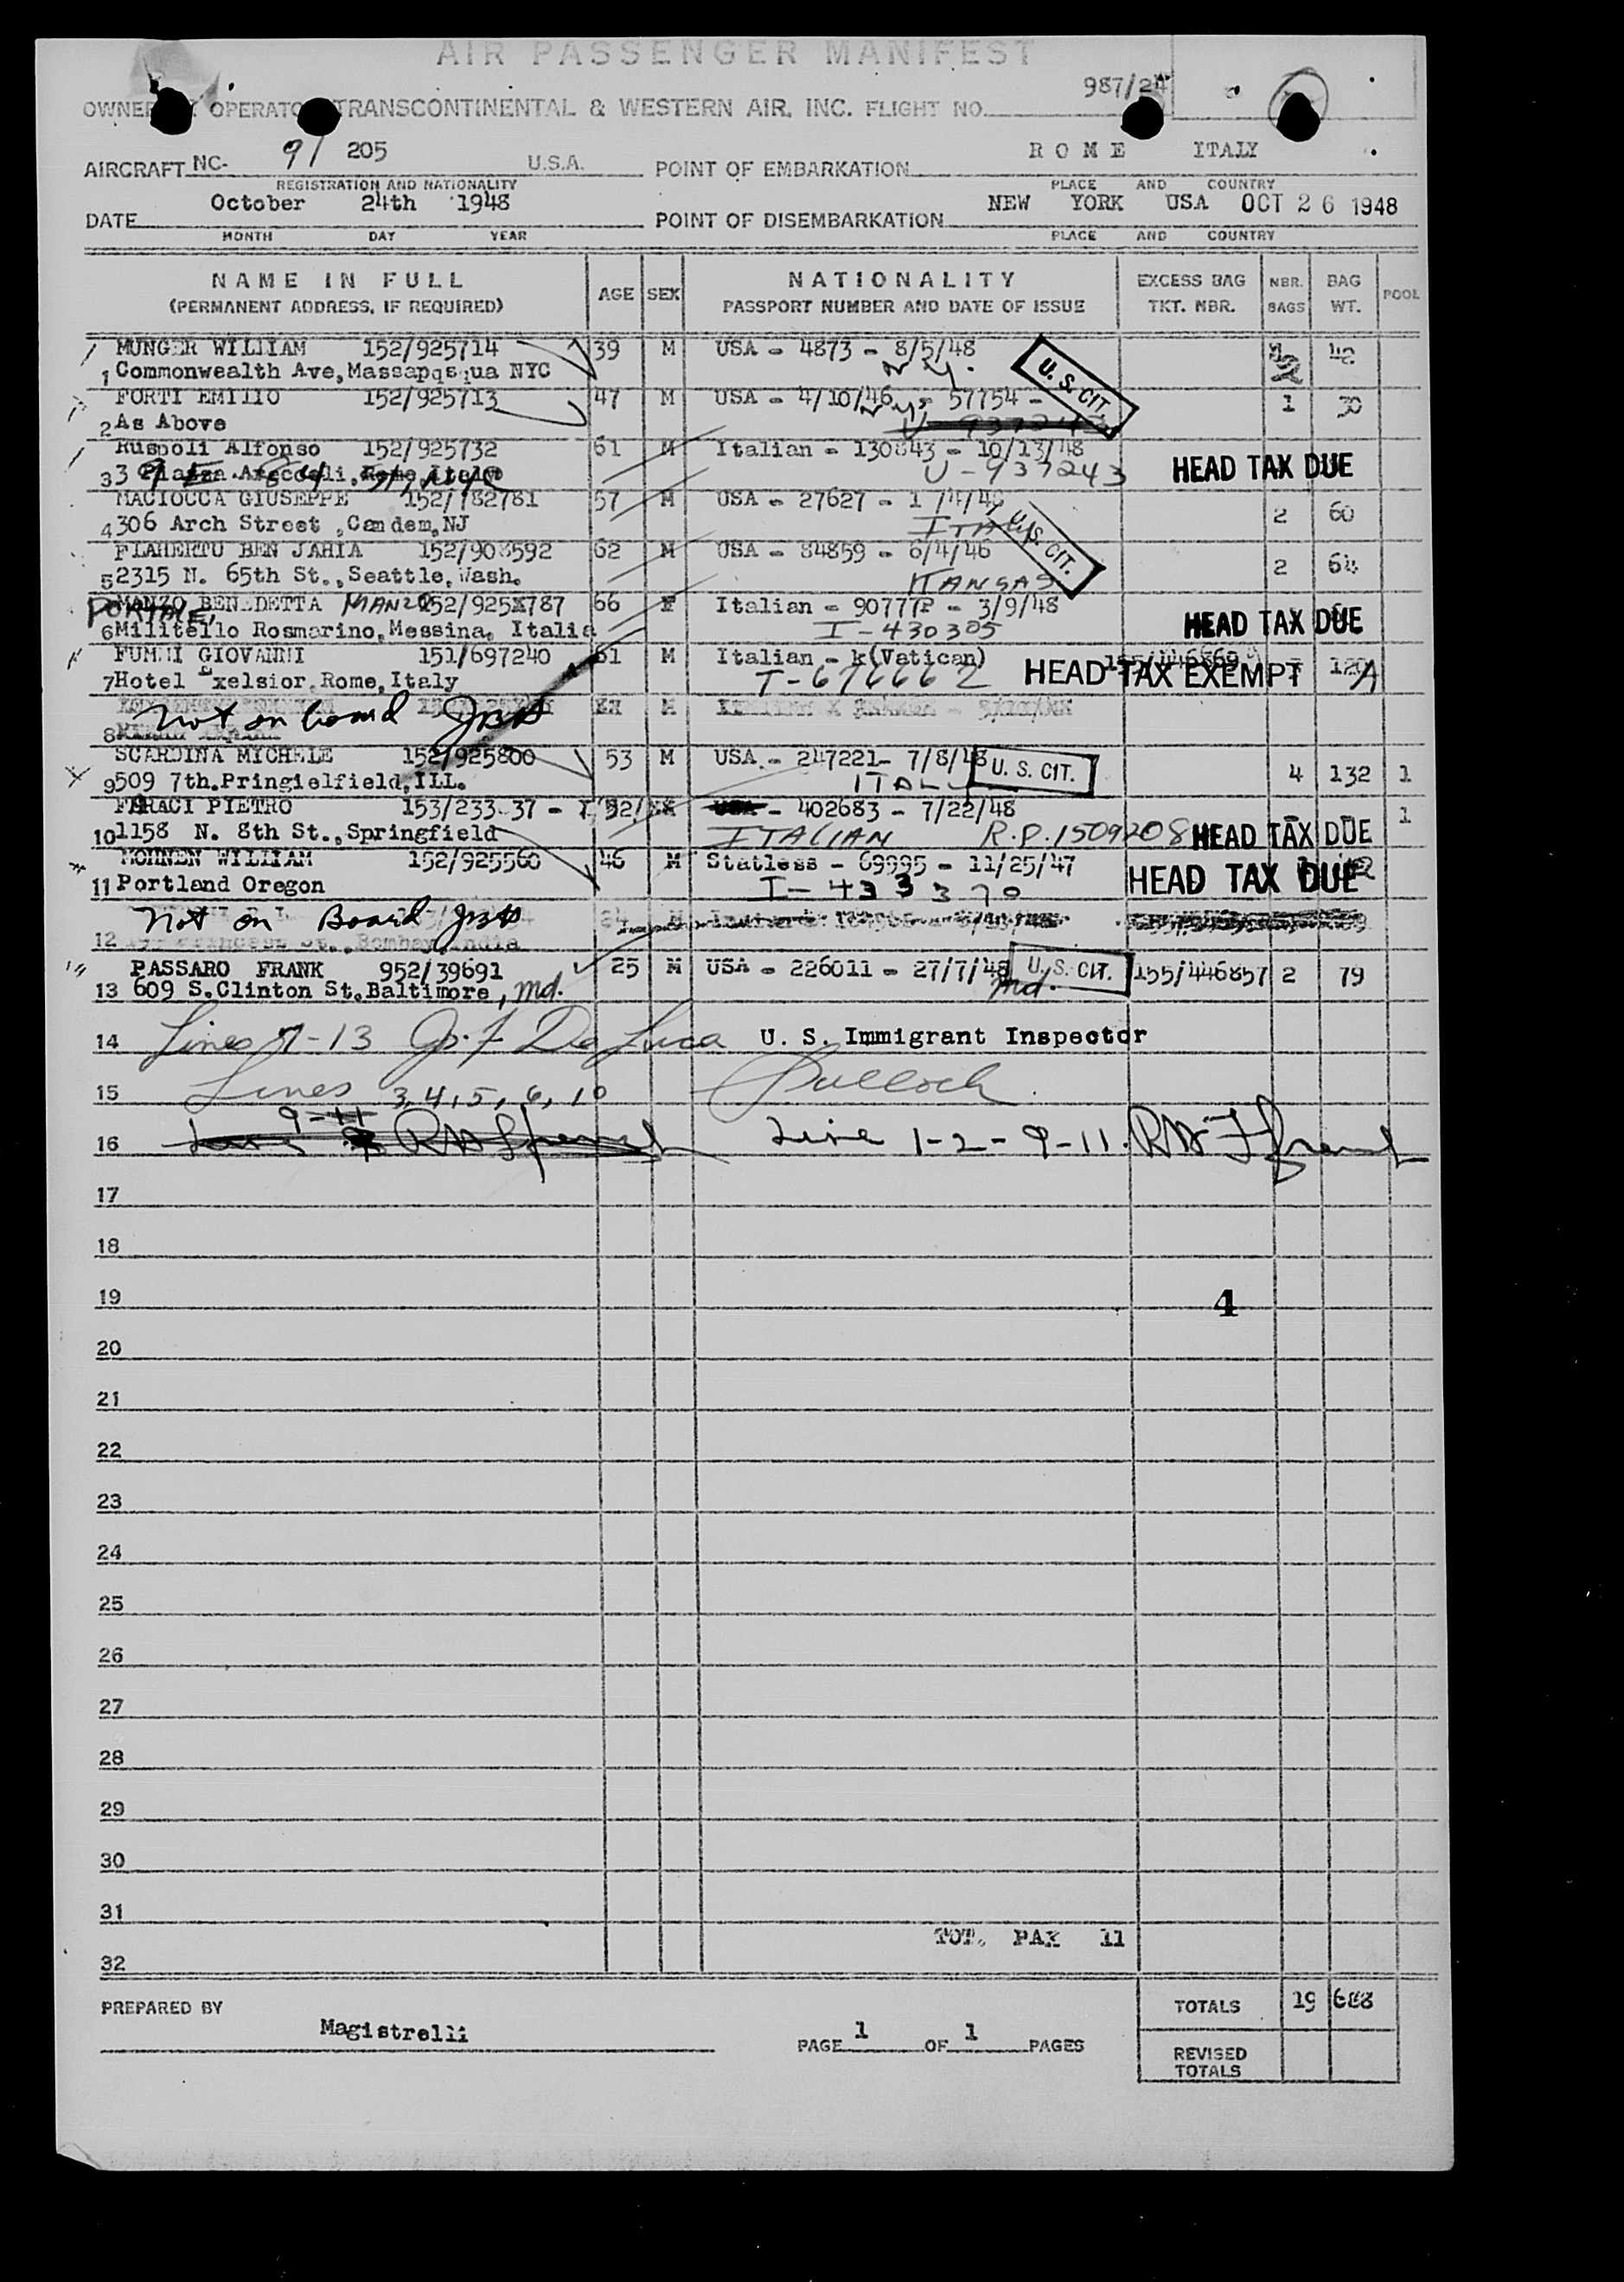 AIR PASSENGER MANIFEST
987/24
OPERATO TRANSCONTINENTAL & WESTERN AIR, INC. FLIGHT NO.
AIRCRAFT NC- 91 205 U.S.A. POINT OF EMBARKATION ROME ITALY
REGISTRATION AND NATIONALITY PLACE AND COUNTRY
DATE October 24th 1948 POINT OF DISEMBARKATION NEW YORK USA OCT 26 1948
MONTH DAY YEAR PLACE AND COUNTRY
NAME IN FULL AGE SEX NATIONALITY EXCESS BAG NBR. BAG POOL
(PERMANENT ADDRESS, IF REQUIRED) PASSPORT NUMBER AND DATE OF ISSUE TKT. NBR. BAGS WT.
MUNGER WILLIAM 152/925714 39 M USA - 4873 - 8/5/48 42
1 Commonwealth Ave, NYC N.Y. U. S. CIT.
FORTI EMILIO 152/925713 47 M USA - 4/10/46 - 57754 - 1 30
2 As Above
Ruspoli Alfonso 152/925732 61 M Italian - 130843 - 10/13/48
3 U-937243 HEAD TAX DUE
MACIOCCA GIUSEPPE 152/782781 57 M USA - 27627 -
4 306 Arch Street ,Camdem,NJ U. S. CIT. 2 60
FLAHERTU BEN JAHIA 152/908592 62 M USA - 84859 - 6/4/46
5 2315 N. 65th St., Seattle, Wash. KANSAS 2 64
MANZO BENEDETTA MANZO 66 F Italian - - 3/9/48
6 Militello Rosmarino, Messina, Italia I-430305 HEAD TAX DUE
FUMMI GIOVANNI 151/697240 61 M Italian - k(Vatican)
7 Hotel Exelsior, Rome, Italy T-676662 HEAD TAX EXEMPT
8 Not on board M
SCARDINA MICHELE 152/925800 53 M USA - 247221- 7/8/48 U. S. CIT.
9 509 7th.Pringielfield, ILL. ITALY 4 132 1
FARACI PIETRO - 402683 - 7/22/48 1
10 1158 N. 8th St., Springfield ITALIAN R.P.1509208 HEAD TAX DUE
MOHNEN WILLIAM 152/925560 46 M Statless - 69995 - 11/25/47
11 Portland Oregon I-433370 HEAD TAX DUE
Not on Board
12 Bombay, India
PASSARO FRANK 952/39691 25 M USA - 226011 - 27/7/48 U. S. CIT. 155/446857 2 79
13 609 S.Clinton St.Baltimore, Md. Md.
14 Lines 7-13 De Luca U. S. Immigrant Inspector
15 Lines 3, 4, 5, 6, 10 Bulloch
9-11
16 Line 1-2-9-11.
17
18
19 4
20
21
22
23
24
25
26
27
28
29
30
31
TOT. PAX 11
32
PREPARED BY Magistrelli PAGE 1 OF 1 PAGES TOTALS 19 688
REVISED
TOTALS